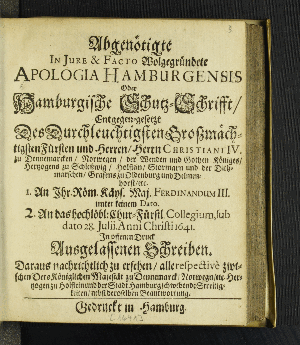 Abgenötigte
IN JURE & FACTO Wolgegründete
APOLOGIA HAMBURGENSIS
Oder
Hamburgische Schutz-Schrifft/
Entgegen gesetzt
Des Durchleuchtigsten Großmäch-
tigsten Fürsten und Herren/ Herrn CHRISTIANI IV.
zu Dennemarcken/ Norwegen/ der Wenden und Gothen Königes/
Hertzogens zu Schleßwig/ Holstein/ Stormarn und der Dieth-
marschen/ Graffens zu Oldenburg und Delmen-
horst/ etc.
1. An Ihr. Röm. Käys. Maj. FERDINANDUM III.
unter keinem Dato.
2. An das hochlöbl: Chur-Fürstl Collegium, sub
dato 28. Julii. Anni Christi 1641.
In offenem Druck
Ausgelassenen Schreiben.
Daraus nachrichtlich zu ersehen/ alle respectivè zwi-
schen Dero Königlichen Majestät zu Dennemarck/ Norwegen/ etc. Her-
tzogen zu Holstein und der Stadt Hamburg schwebende Streitig-
keiten/ nebst derselben Beantwortung.
Gedruckt in Hamburg.